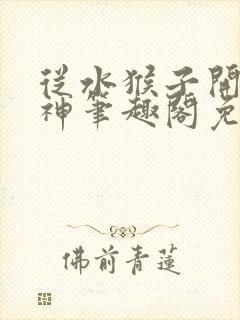 從水猴子開
神筆趣閣免
佛前青蓮